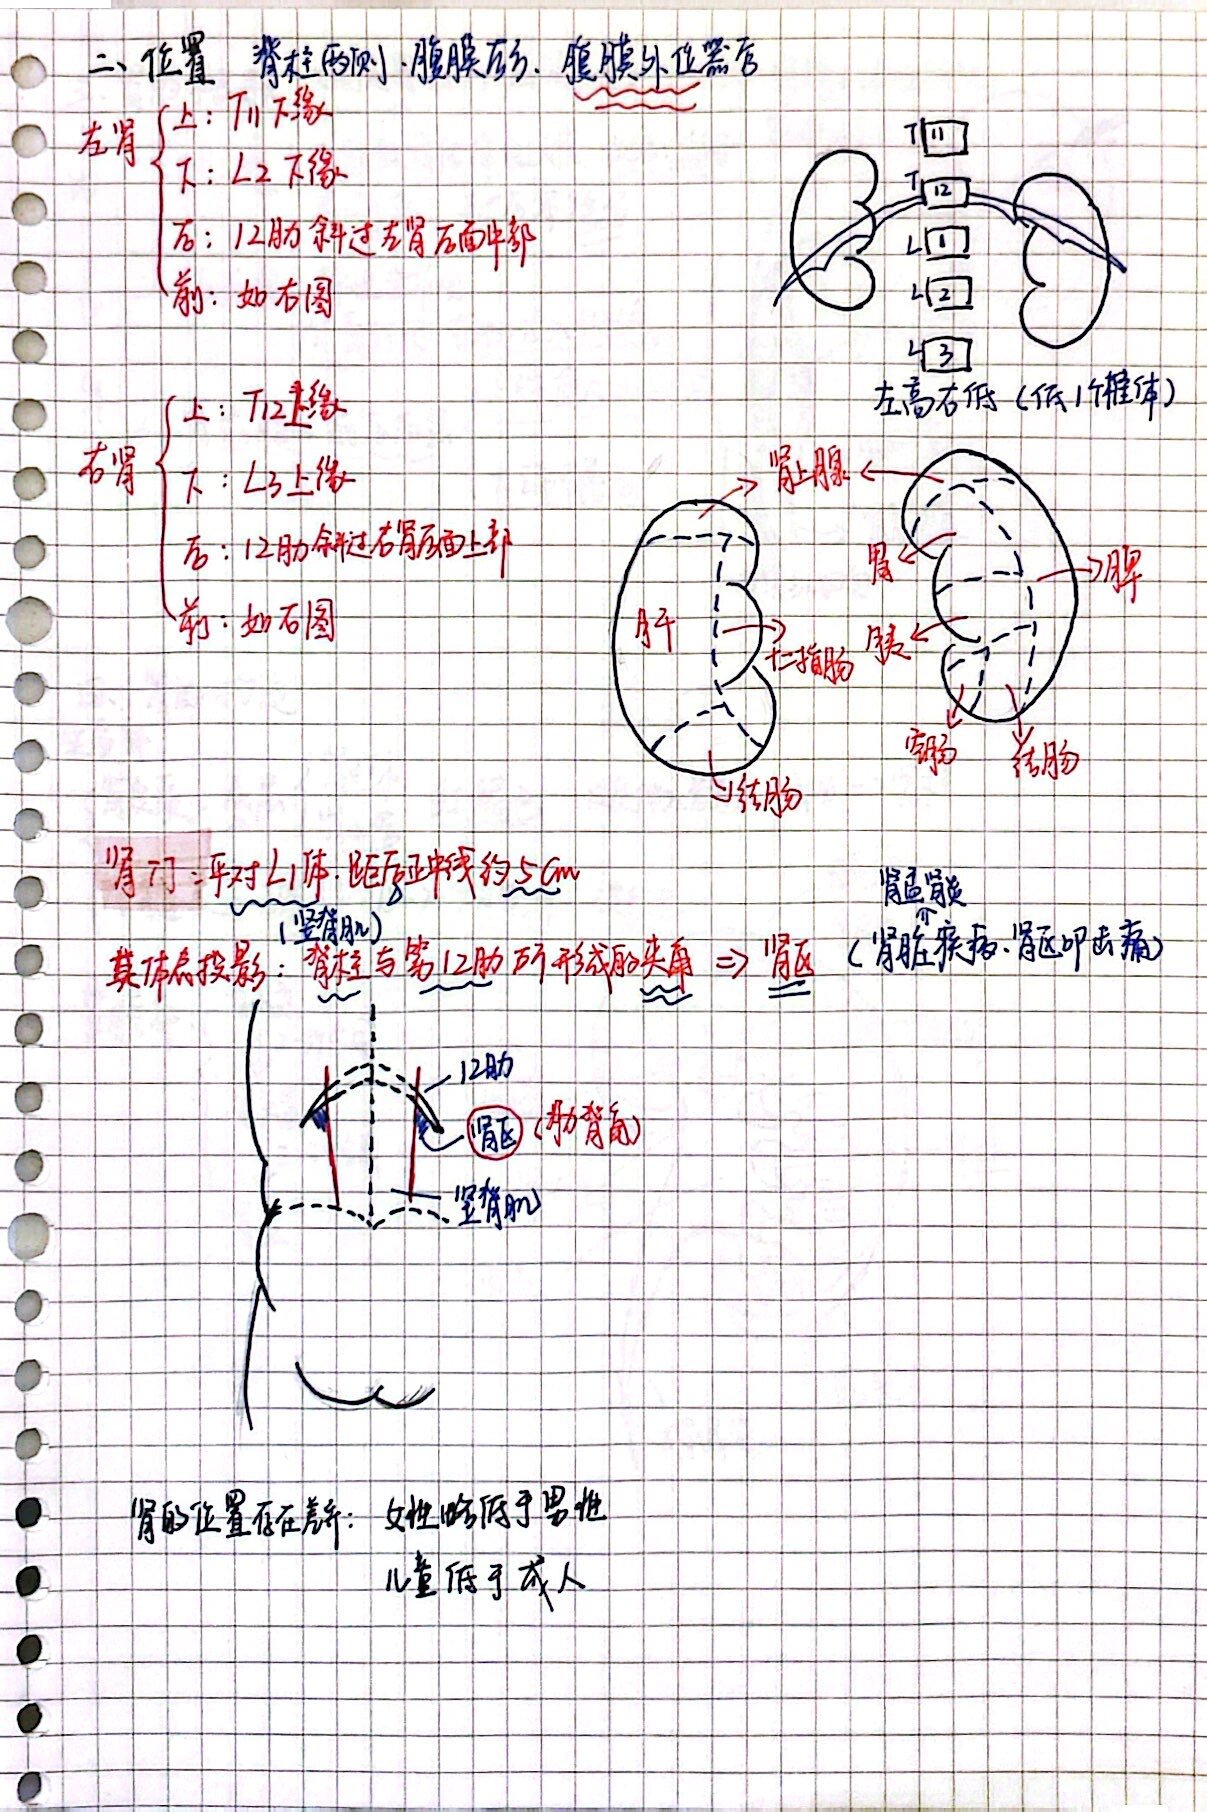 二、位置 脊柱两侧、腹膜后方、腹膜外位器官
左肾
上：T11下缘
下：L2下缘
后：12肋斜过左肾后面中部
前：如右图
T 11
T 12
L 1
L 2
L 3
左高右低（低1个椎体）
右肾
上：T12上缘
下：L3上缘
后：12肋斜过右肾后面上部
前：如右图
肾上腺
肝
十二指肠
结肠
胃
脾
胰
空肠
结肠
肾门：平对L1体、距后正中线约5cm
肾盂肾炎
（竖脊肌）
其体表投影：脊柱与第12肋所形成的夹角 => 肾区（肾脏疾病、肾区叩击痛）
12肋
肾区（肋脊角）
竖脊肌
肾的位置存在差异：女性略低于男性
儿童低于成人